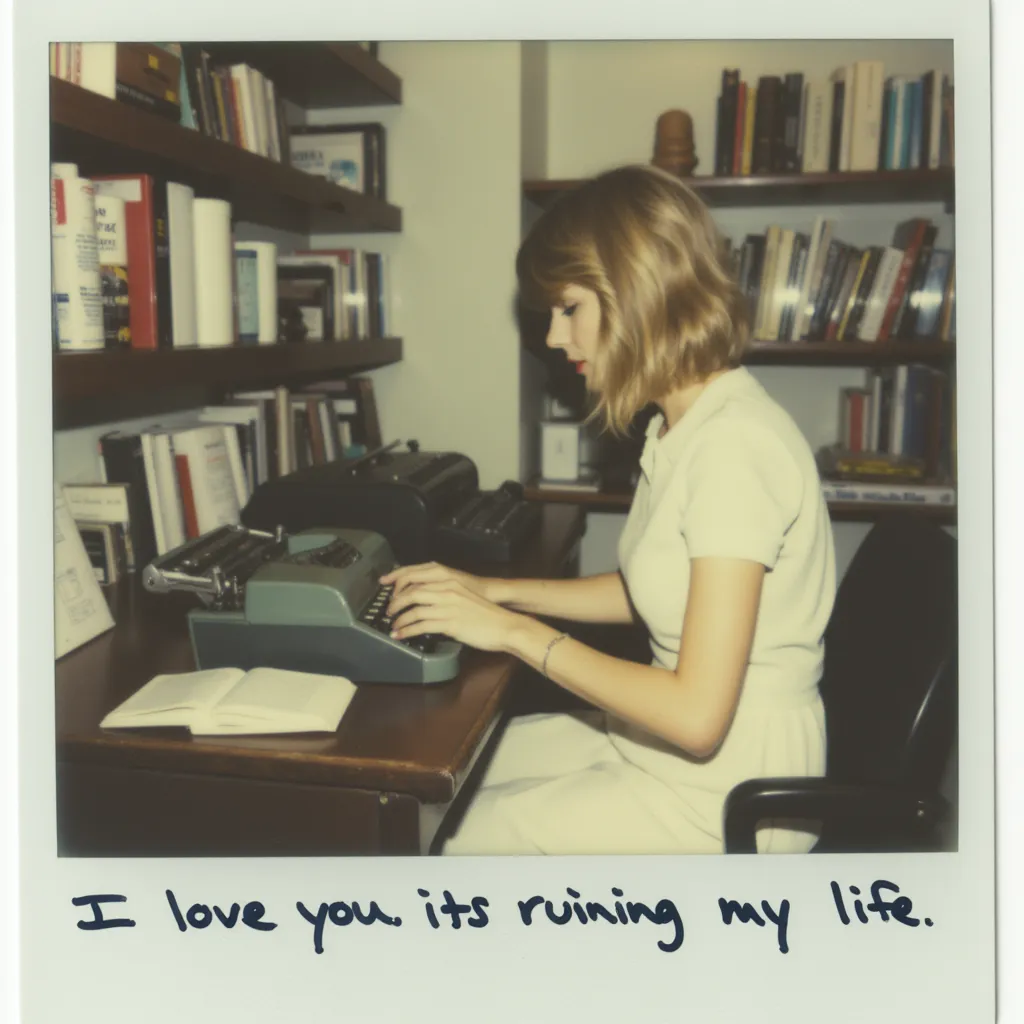 I love you. its ruining my life.